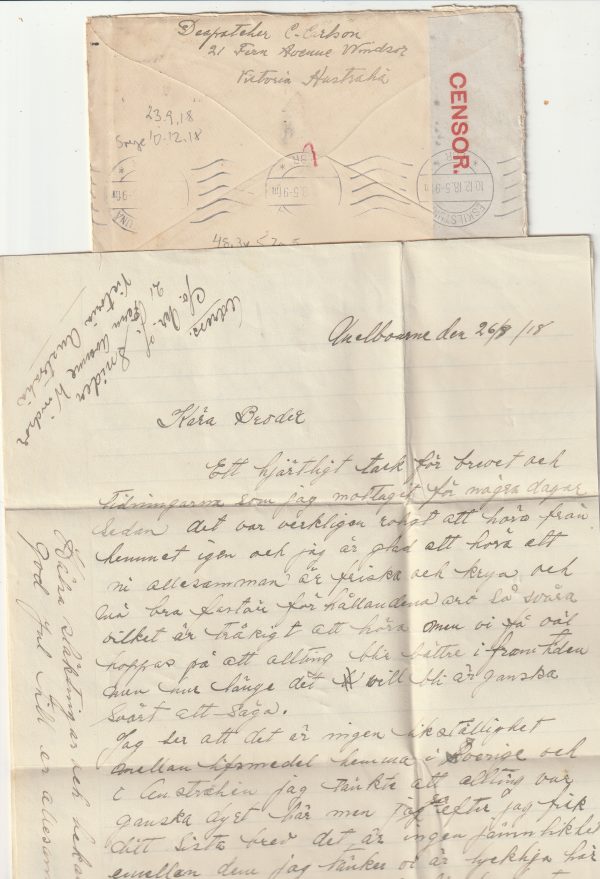 Despatcher C. Carlson
21 Fern Avenue Windsor
Victoria Australia
CENSOR.
23.9.18
10.12.18
10.12.18.5-9
Adress.
C/o. Mr. Snider
21 Fern Avenue Windsor
Victoria Australia
Melbourne den 26/8 /18
Kära Broder
Ett hjärtligt tack för brevet och
tidningarna som jag mottaget för några dagar
sedan det var verkligen roligt att höra från
hemmet igen och jag är glad att höra att
ni allesamman är friska och krya och
må bra fastän förhållandena äro så svåra
vilket är tråkigt att höra men vi få väl
hoppas på att allting blir bättre i framtiden
men hur länge det will bli är ganska
svårt att säga.
Jag ser att det är ingen likställighet
mellan lifsmedel hemma i Sverige och
i Australien jag tänkte att allting var
ganska dyrt här men efter jag fik
ditt sista brev det är ingen jämnlikhet
emellan dem jag tänker vi är lyckliga här
Kära släktingar och
God Jul till er allesam